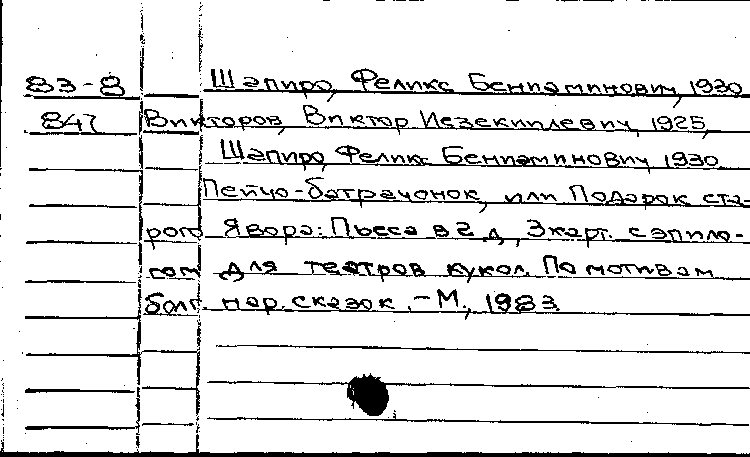 83-8 Шапиро, Феликс Бениаминович, 1930
847 Викторов, Виктор Иезекиилевич, 1925,
Шапиро, Феликс Бениаминович, 1930.
Пейчо-батрачонок, или Подарок ста-
рого Явора: Пьеса в 2 д., 3 карт. с эпило-
гом для театров кукол. По мотивам
болг. нар. сказок. - М., 1983.